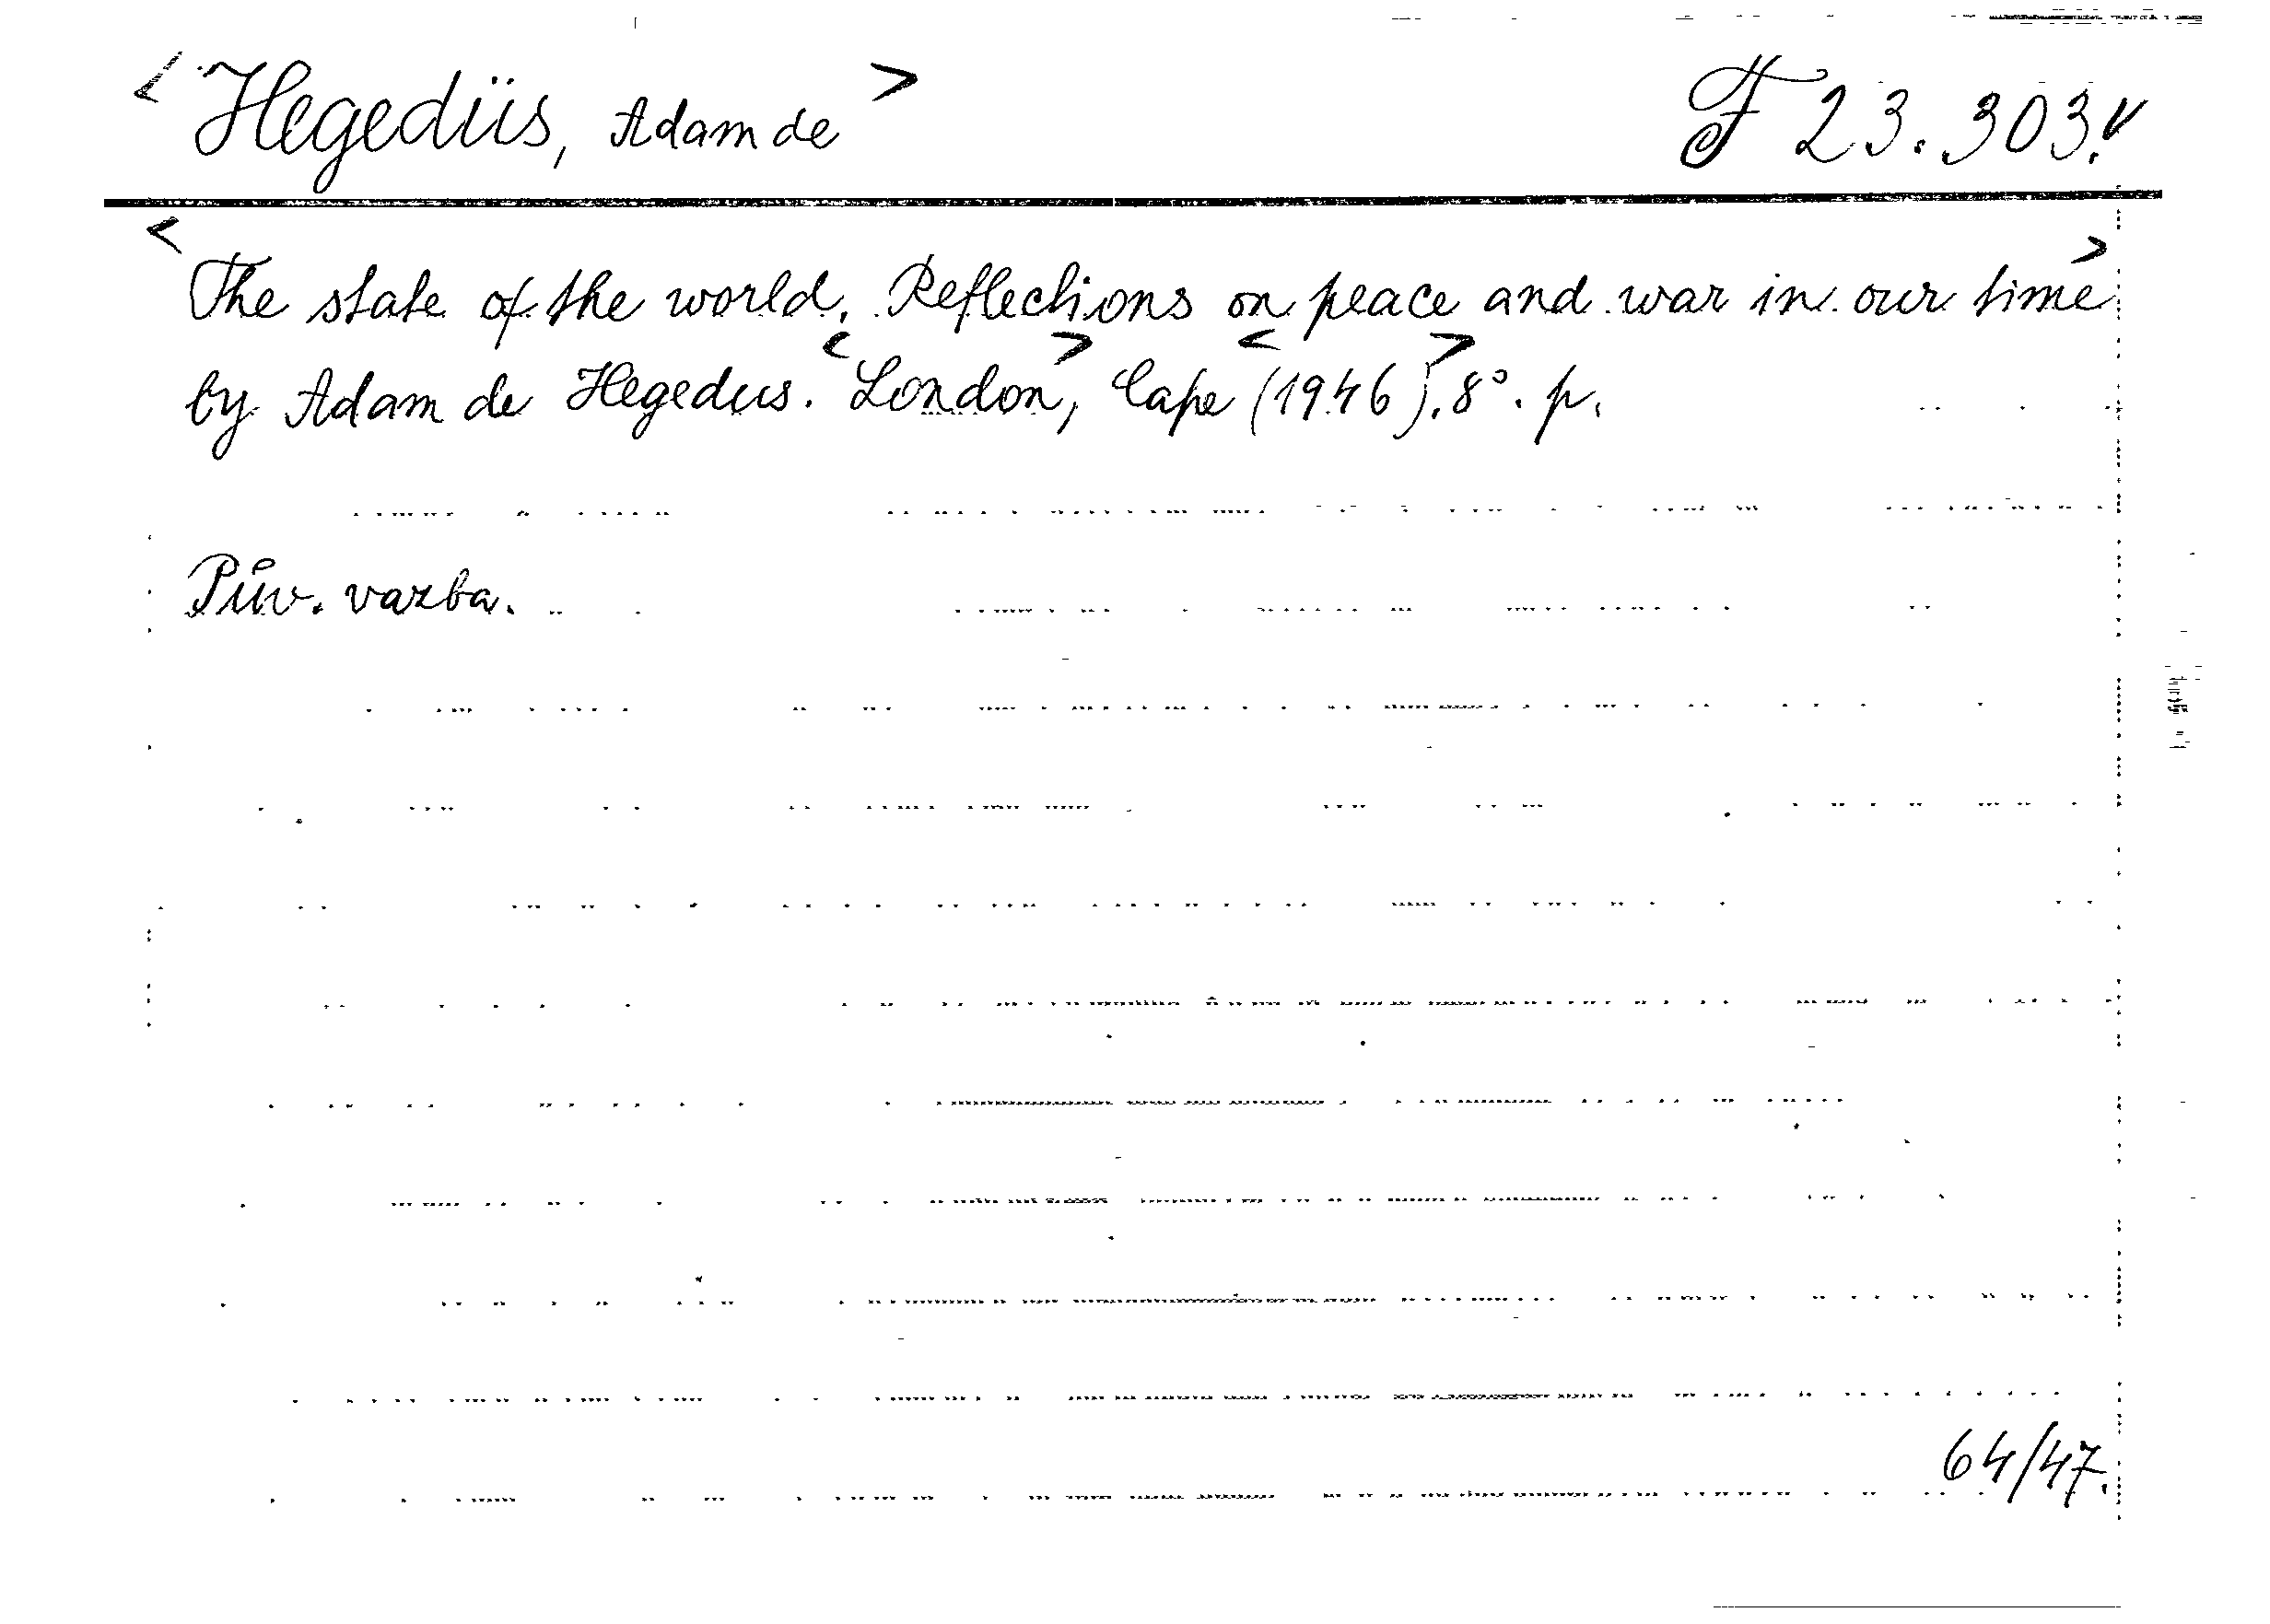 <Hegedüs, Adam de> F 23.303.v
<The state of the world. Reflections on peace and war in our time>
by Adam de Hegedus. <London>, Cape <(1946)>. 8°. p.
Pův. vazba.
64/47.